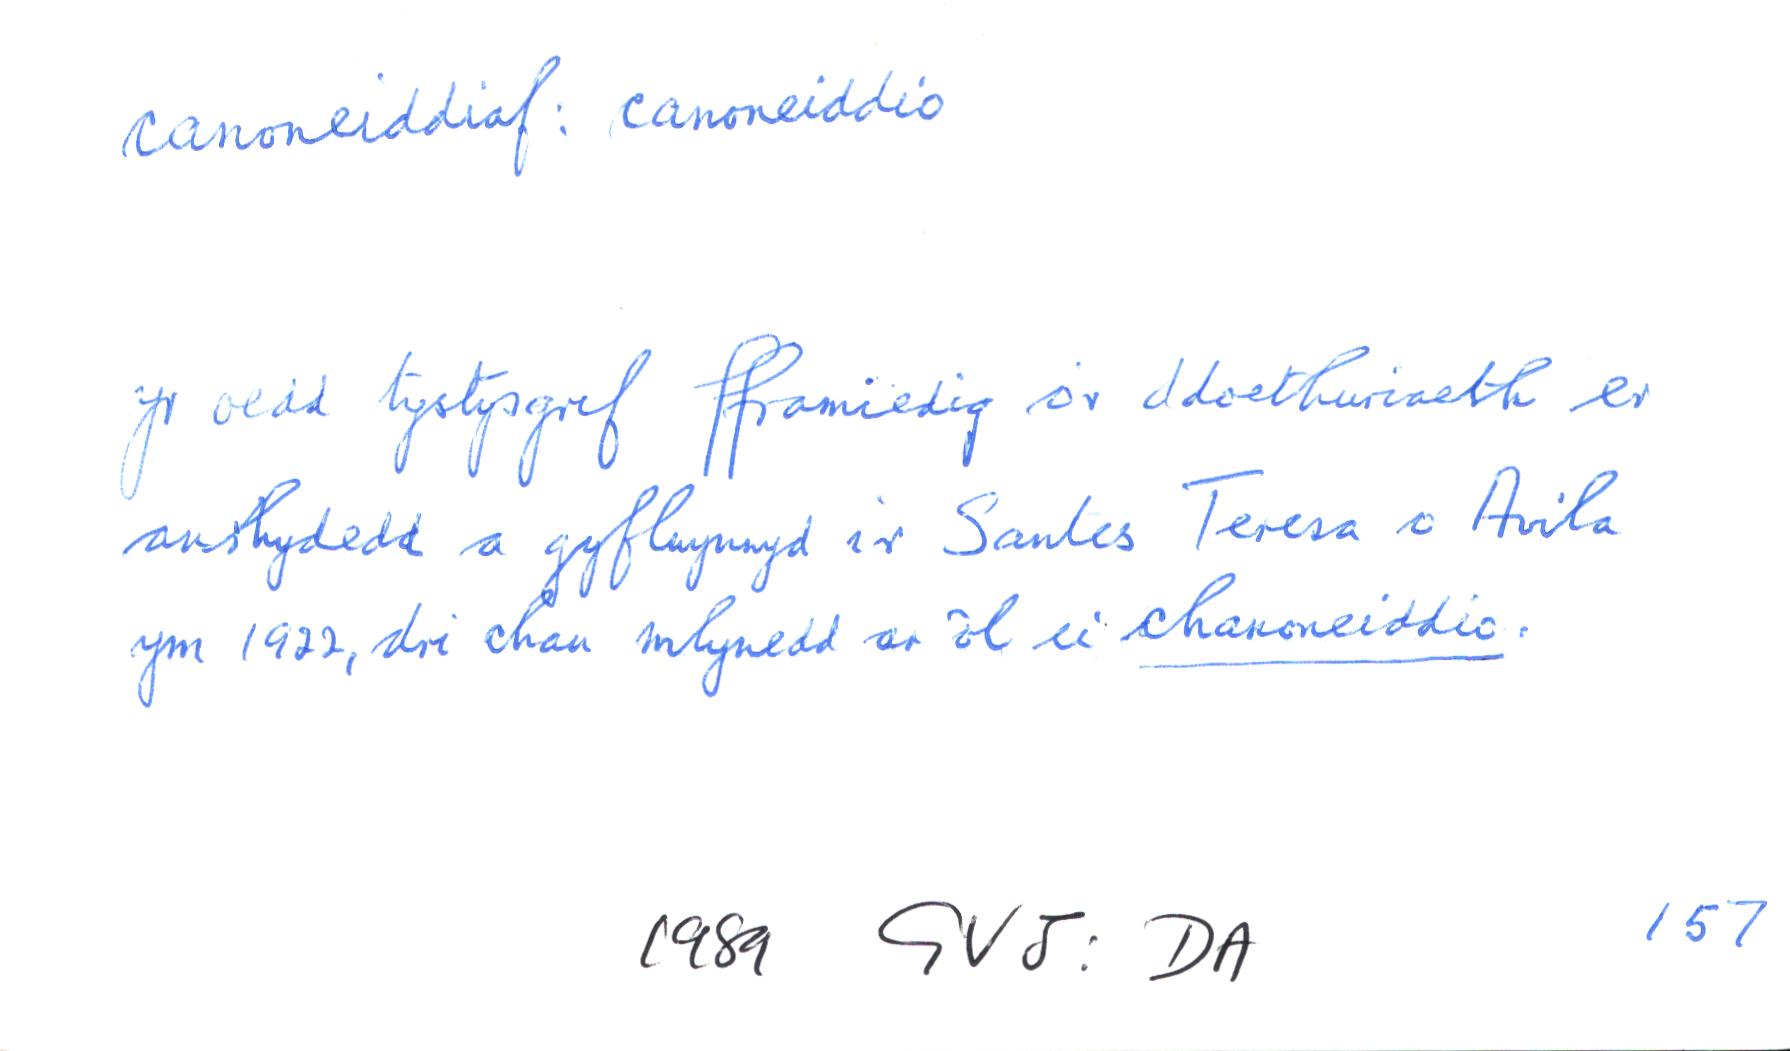 canoneiddiaf: canoneiddio
yr oedd tystysgrif fframiedig o'r ddoethuriaeth er
anrhydedd a gyflwynwyd i'r Santes Teresa o Avila
ym 1922, dri chan mlynedd ar ôl ei chanoneiddio.
1989 GVJ: DA 157